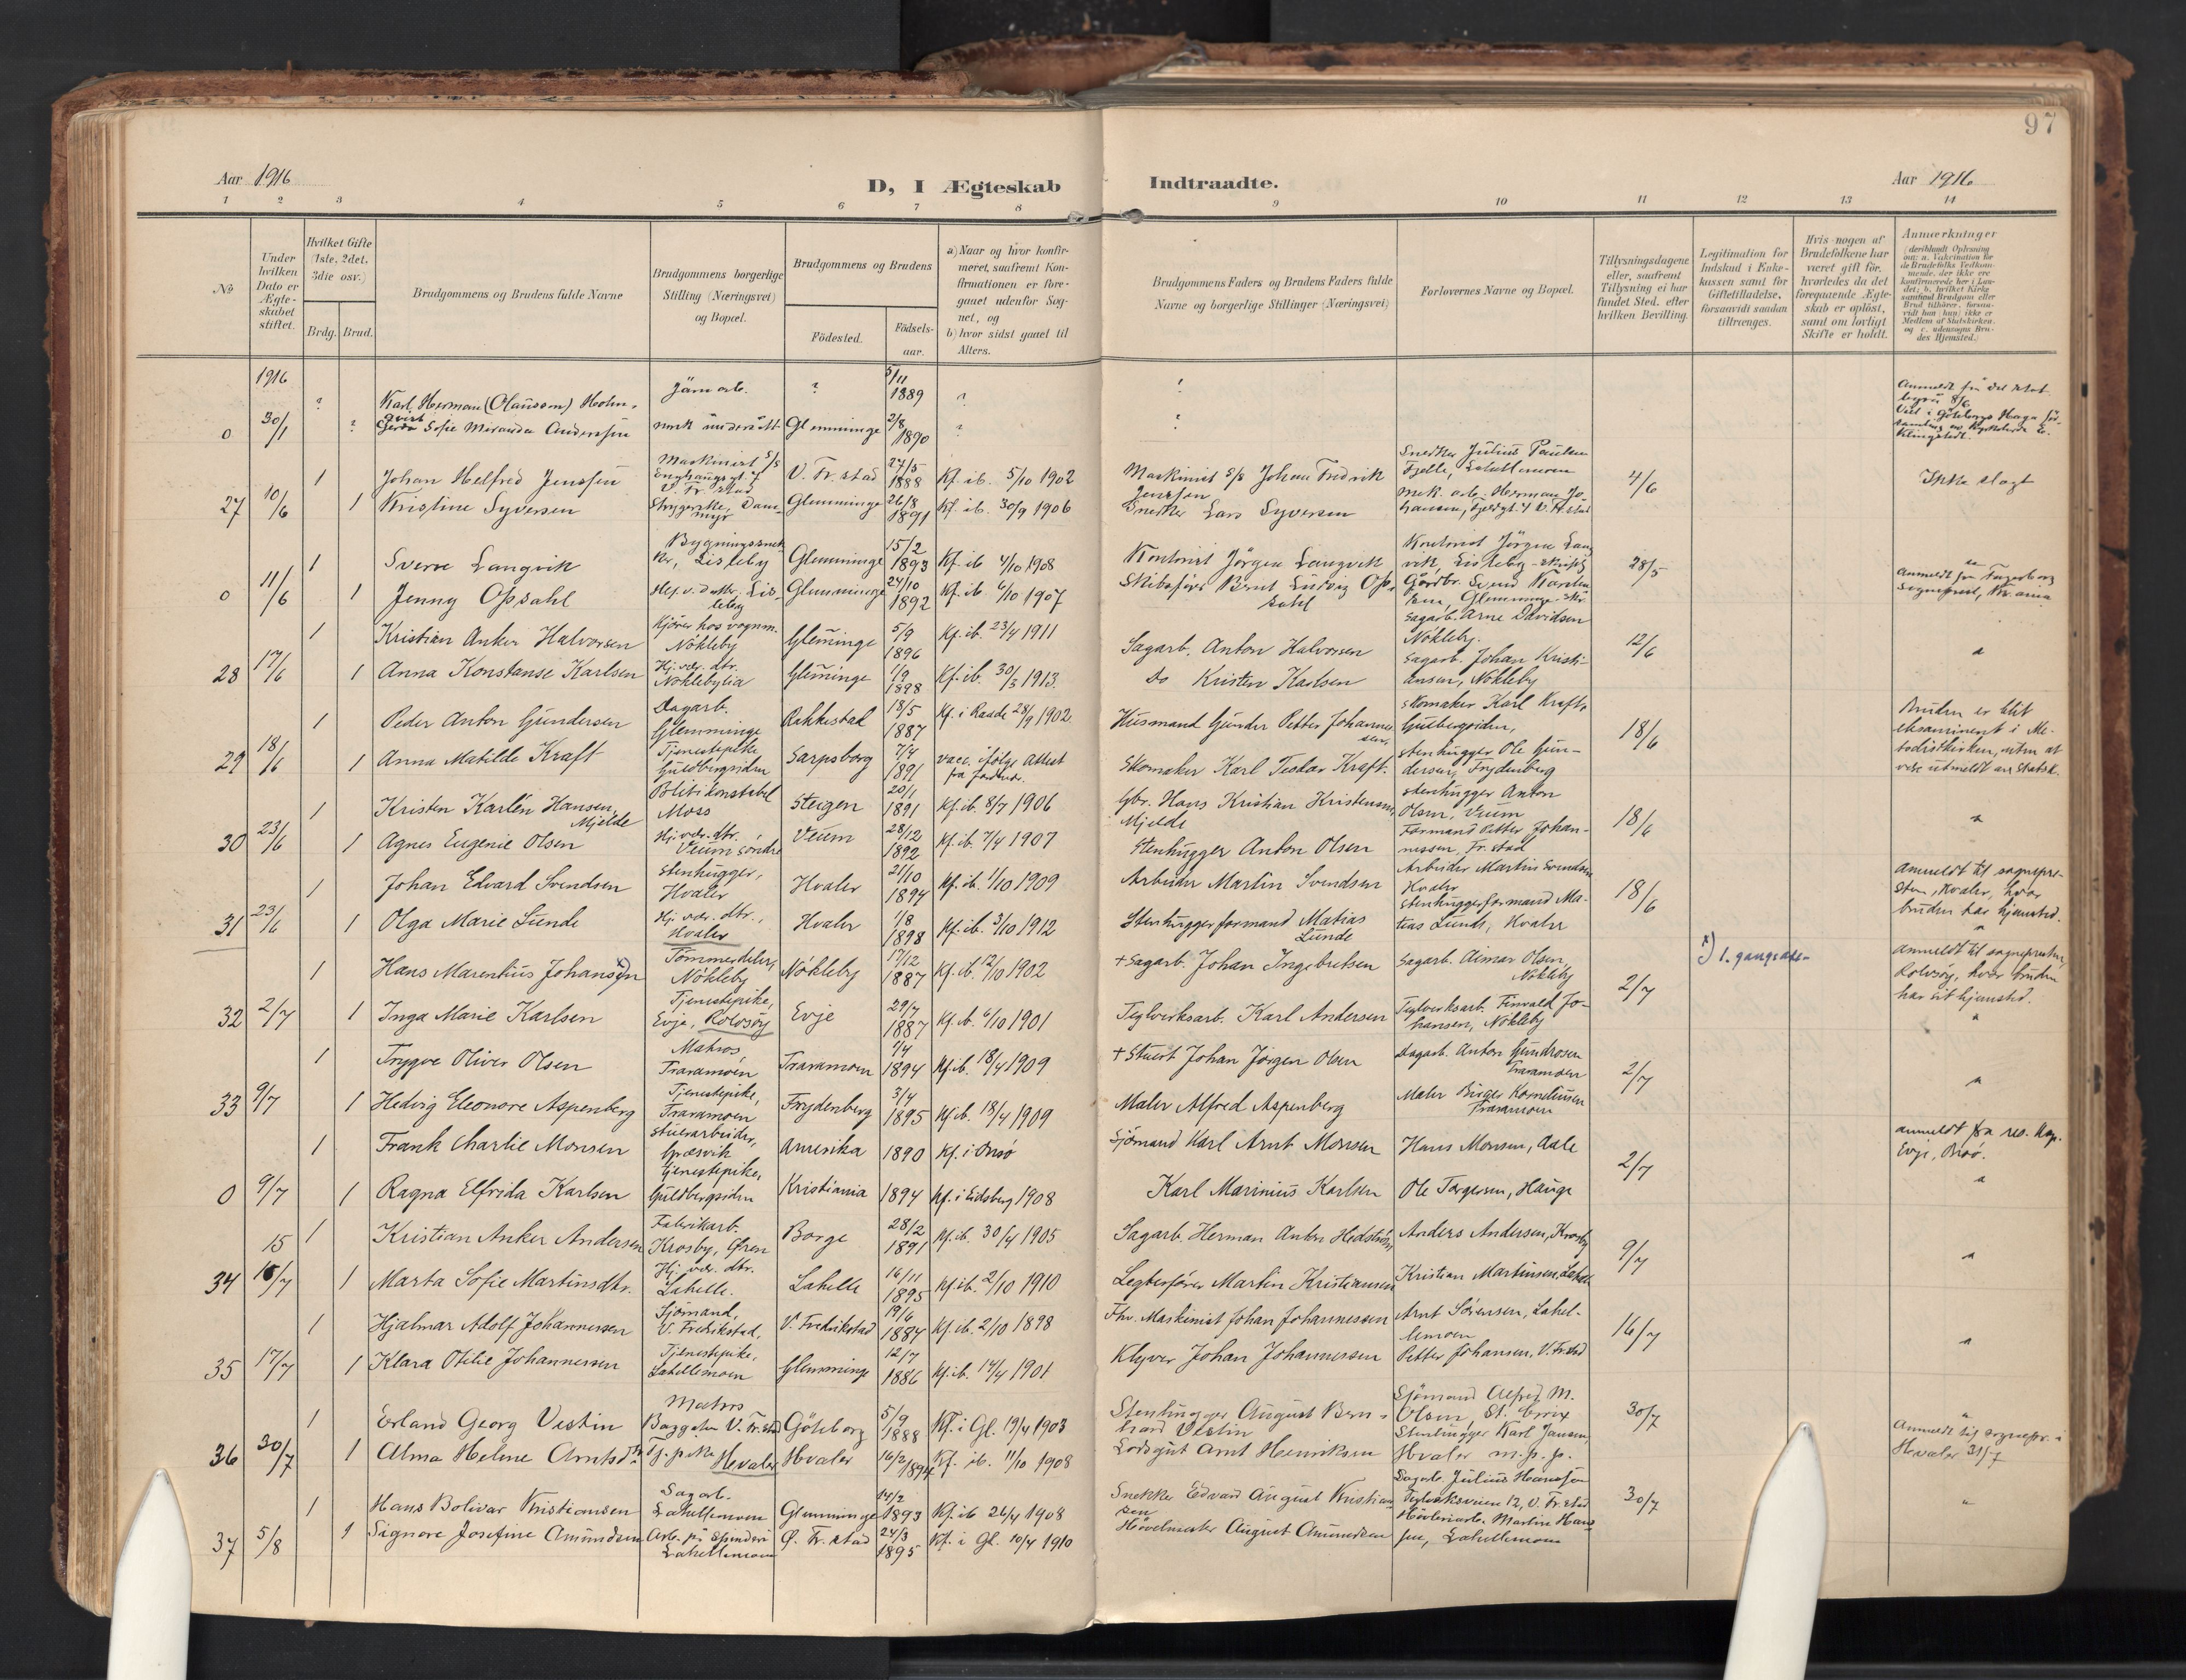 97
Aar 1916
D, I Ægteskab Indtraadte.
Aar 1916
1 2 3 4 5 6 7 8 9 10 11 12 13 14
No
Under hvilken Dato er Ægteskabet stiftet.
Hvilket Gifte (1ste, 2det, 3die osv.)
Brdg. Brud.
Brudgommens og Brudens fulde Navne
Brudgommens borgerlige Stilling (Næringsvei) og Bopæl.
Brudgommens og Brudens
Födested.
Födselsaar.
a) Naar og hvor konfirmeret, saafremt Konfirmationen er foregaaet udenfor Sognet, og
b) hvor sidst gaaet til Alters.
Brudgommens Faders og Brudens Faders fulde Navne og borgerlige Stillinger (Næringsvei)
Forlovernes Navne og Bopæl.
Tillysningsdagene eller, saafremt Tillysning ei har fundet Sted, efter hvilken Bevilling.
Legitimation for Indskud i Enkekassen samt for Giftetilladelse, forsaavidt saadan tiltrænges.
Hvis nogen af Brudefolkene har været gift för, hvorledes da det foregaaende Ægteskab er oplöst, samt om lovligt Skifte er holdt.
Anmærkninger
1916 ? Karl Herman (Olausson) Holm- Järnarb. ? 5/11 1889 ? ?
0 30/1 ? qvist Gerda Sofie Miranda Anderssen norsk undersått Glemminge 2/8 1890 ? ?
1 Johan Helfred Jenssen Maskinist s/s V. Fr.stad 27/5 1888 Kf. ib. 5/10 1902 Maskinist s/s Johan Fredrik Jenssen Snedker Julius Paulsen 4/6 Ikke slagt
27 10/6 1 Kristine Syversen Strygerske, Dammyr Glemminge 26/8 1891 Kf. ib. 30/9 1906 Snedker Lars Syversen mek. arb. Herman Johansen
1 Sverre Langvik Lisleby Glemminge 15/2 1893 Kf. ib 4/10 1908 Kontorist Jörgen Langvik Kontorist Jörgen Langvik, Lisleby 28/5
0 11/6 1 Jenny Opsahl Hj. v. datter, Lisleby Glemminge 24/10 1892 Kf. ib 6/10 1907 Skibsförer Bernt Ludvig Opsahl Gårdbr. Svend Karlsen, Glemminge
1 Kristian Anker Halvorsen Kjörer hos vognm. Nökleby Gleminge 5/9 1896 Kf. ib. 23/4 1911 Sagarb. Anton Halvorsen Sagarb. Arne Davidsen Nökleby. 12/6 "
28 17/6 1 Anna Konstanse Karlsen Hj. vær. dtr. Nöklebylia Gleminge 1/9 1898 Kf. ib. 30/3 1913. Do Kristen Karlsen Sagarb. Johan Kristiansen, Nökleby
1 Peder Anton Gundersen Dagarb. Glemminge Rakkestad 18/5 1887 Kf. i Raade 28/9 1902. Husmand Gunder Petter Johannesen, Skomaker Karl Kraft, Guldbergsiden, 18/6 Bruden er blit eksaminent i Metodistkirken, uten at være utmeldt av Statsk.
29 18/6 1 Anna Matilde Kraft Tjenestepike Guldbergsiden Sarpsborg 7/4 1891 vacc. ifølge attest Skomaker Karl Teodor Kraft. Stenhugger Ole Gundersen, Frydenberg
1 Kristen Karlén Hansen Mjelde Politikonstabel Moss Steigen 20/1 1891 Kf. ib. 8/7 1906 Gbr. Hans Kristian Kristensen Mjelde Stenhugger Anton Olsen, Veum 18/6 "
30 23/6 1 Agnes Eugenie Olsen Hj. vær. dtr. Veum søndre Veum 28/12 1892 Kf. ib. 7/4 1907 Stenhugger Anton Olsen Formand Petter Johannessen, Fr.stad
1 Johan Edvard Svendsen Stenhugger, Hvaler Hvaler 21/10 1894 Kf. ib. 1/10 1909 Arbeider Martin Svendsen Arbeider Martin Svendsen Hvaler 18/6 anmeldt til sognepresten, Hvaler, hvor bruden har hjemsted.
31 23/6 1 Olga Marie Lunde Hj. vær. dtr., Hvaler Hvaler 1/8 1898 Kf. ib. 3/10 1912 Stenhuggerformand Matias Lunde Stenhuggerformand Matias Lunde, Hvaler
1 Hans Marenhius Johansen x) Tømmerdeler, Nökleby Nökleby 17/12 1887 Kf. ib. 12/10 1902 + Sagarb. Johan Ingebretsen Sagarb. Aimar Olsen, Nökleby 2/7 x) 1. gangs anmeldt til sognepresten, Rolvsøy, hvor bruden har sit hjemsted.
32 2/7 1 Inga Marie Karlsen Tjenestepike, Evje, Rolvsøy Evje 29/7 1887 Kf. ib. 6/10 1901 Teglverksarb. Karl Andersen Teglverksarb. Finvald Johansen, Nökleby
1 Trygve Oliver Olsen Matros, Traramoen Traramoen 1/4 1894 Kf. ib. 18/4 1909 + Stuert Johan Jörgen Olsen Dagarb. Anton Gundrosen Traramoen 2/7 "
33 9/7 1 Hedvig Eleonore Aspenberg Tjenestepike, Traramoen Frydenberg 3/4 1895 Kf. ib. 18/4 1909 Maler Alfred Aspenberg Maler Birger Korneliussen Traramoen
1 Frank Charlie Monsen Stuerarbeider, Græsvik Amerika 1890 Kf. i Onsø Sjømand Karl Arnt Monsen Hans Monsen, Aale 2/7 anmeldt fra res. kap. Evje, Onsø.
0 9/7 1 Ragna Elfrida Karlsen Tjenestepike, Guldbergsiden Kristiania 1894 Kf. i Eidsberg 1908 Karl Marinius Karlsen Ole Torgersen, Hauge
1 Kristian Anker Andersen Fabrikarb. Krosby, Øren Borge 28/2 1891 Kf. ib. 30/4 1905 Sagarb. Herman Anton Hedström Anders Andersen, Krosby 9/7 "
34 15/7 1 Marta Sofie Martinsdtr. Hj. vær. dtr. Lahelle. Lahelle 16/11 1895 Kf. ib. 2/10 1910 Legterfører Martin Kristiansen Kristian Martinsen, Lahelle
1 Hjalmar Adolf Johannessen Sjömand, V. Fredrikstad, V. Fredrikstad 19/6 1884 Kf. ib. 2/10 1898 Fhv. Maskinist Johan Johannessen Arnt Sörensen, Lahellemoen 16/7 "
35 17/7 1 Klara Otilie Johannessen Tjenestepike, Lahellemoen Glemminge 12/7 1886 Kf. ib. 14/4 1901 Klyver Johan Johannessen Petter Johansen, V. Fr.stad
1 Erland Georg Vestin Matros V. Fr.stad Göteborg 5/9 1888 Kf. i Gl. 19/4 1903 Stenhugger August Bernhard Vestin Sjömand Alfred M. Olsen, St. Croix 30/7 Anmeldt til sognepr. i Hvaler 31/7
36 30/7 1 Alma Helene Arntsdtr. Tj. pike Hvaler Hvaler 16/2 1894 Kf. ib. 11/10 1908 Lodsgut Arnt Henriksen Stenhugger Karl Jansen, Hvaler m.p.p.
1 Hans Bolivar Kristiansen Sagarb. Lahellemoen Glemminge 14/2 1893 Kf. ib 26/4 1908 Snekker Edvard August Kristiansen Sagarb. Julius Hanssen Teglverksveien 12, V. Fr.stad 30/7 "
37 5/8 1 Signore Josefine Amundsen Arb. på spinderi Lahellemoen Ø. Fr.stad 24/3 1895 Kf. i Gl. 10/4 1910 Hövelmester August Amundsen Hövleriarb. Martin Hanssen, Lahellemoen